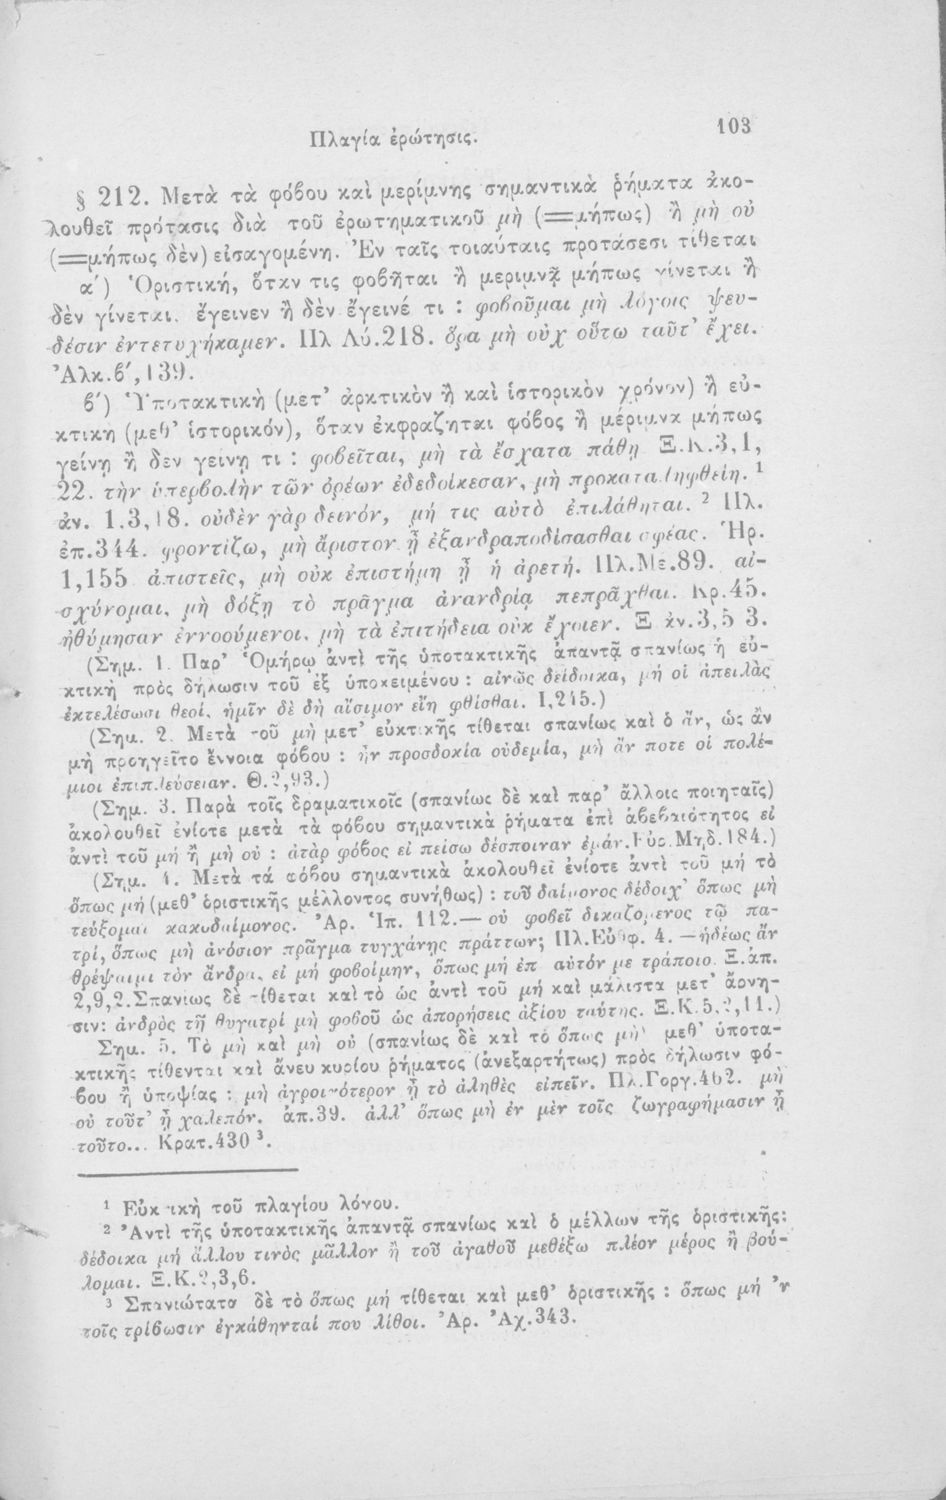 Πλαγία ἐρώτησις.
103
§ 212. Μετὰ τὰ φόβου καὶ μερίμνης σημαντικὰ ῥήματα ἀκο-
λουθεῖ πρότασις διὰ τοῦ ἐρωτηματικοῦ μὴ (=μήπως) ἢ μὴ οὐ
(=μήπως δὲν) εἰσαγομένη. Ἐν ταῖς τοιαύταις προτάσεσι τίθεται
α′) Ὁριστική, ὅταν τις φοβῆται ἢ μεριμνᾷ μήπως γίνεται ἢ
δὲν γίνεται, ἔγεινεν ἢ δὲν ἔγεινέ τι : φοβοῦμαι μὴ λόγοις ψευ-
δέσιν ἐντετυχήκαμεν. Πλ Λύ.218. ὅρα μὴ οὐχ οὕτω ταῦτ᾽ ἔχει.
Ἀλκ.β′,139.
β′) Ὑποτακτικὴ (μετ᾽ ἀρκτικὸν ἢ καὶ ἱστορικὸν χρόνον) ἢ εὐ-
κτικὴ (μεθ᾽ ἱστορικόν), ὅταν ἐκφράζηται φόβος ἢ μέριμνα μήπως
γείνῃ ἢ δὲν γείνῃ τι : φοβεῖται, μὴ τὰ ἔσχατα πάθῃ Ξ.Κ.3,1,
22. τὴν ὑπερβολὴν τῶν ὀρέων ἐδεδοίκεσαν, μὴ προκαταληφθείη. ¹
ἀν. 1.3,18. οὐδὲν γὰρ δεινόν, μή τις αὐτὸ ἐπιλάθηται. ² Πλ.
ἐπ.344. φροντίζω, μὴ ἄριστον ᾖ ἐξανδραποδίσασθαι σφέας. Ἡρ.
1,155 ἀπιστεῖς, μὴ οὐκ ἐπιστήμη ᾖ ἡ ἀρετή. Πλ.Με.89. αἰ-
σχύνομαι, μὴ δόξῃ τὸ πρᾶγμα ἀνανδρίᾳ πεπρᾶχθαι. Κρ.45.
ἠθύμησαν ἐννοούμενοι, μὴ τὰ ἐπιτήδεια οὐκ ἔχοιεν. Ξ ἀν.3,5 3.
(Σημ. 1. Παρ᾽ Ὁμήρῳ ἀντὶ τῆς ὑποτακτικῆς ἀπαντᾷ σπανίως ἡ εὐ-
κτικὴ πρὸς δήλωσιν τοῦ ἐξ ὑποκειμένου : αἰνῶς δείδοικα, μή οἱ ἀπειλὰς
ἐκτελέσωσι θεοί, ἡμῖν δὲ δὴ αἴσιμον εἴη φθίσθαι. Ι,245.)
(Σημ. 2. Μετὰ τοῦ μὴ μετ᾽ εὐκτικῆς τίθεται σπανίως καὶ ὁ ἄν, ὡς ἂν
μὴ προηγεῖτο ἔννοια φόβου : ἦν προσδοκία οὐδεμία, μὴ ἄν ποτε οἱ πολέ-
μιοι ἐπιπλεύσειαν. Θ.2,93.)
(Σημ. 3. Παρὰ τοῖς δραματικοῖς (σπανίως δὲ καὶ παρ᾽ ἄλλοις ποιηταῖς)
ἀκολουθεῖ ἐνίοτε μετὰ τὰ φόβου σημαντικὰ ῥήματα ἐπὶ ἀβεβαιότητος εἰ
ἀντὶ τοῦ μή ἢ μὴ οὐ : ἀτὰρ φόβος εἰ πείσω δέσποιναν ἐμάν.Εὐρ.Μηδ.184.)
(Σημ. 4. Μετὰ τά φόβου σημαντικὰ ἀκολουθεῖ ἐνίοτε ἀντὶ τοῦ μή τὸ
ὅπως μή (μεθ᾽ ὁριστικῆς μέλλοντος συνήθως) : τοῦ δαίμονος δέδοιχ᾽ ὅπως μὴ
τεύξομαι κακοδαίμονος. Ἀρ. Ἱπ. 112.— οὐ φοβεῖ δικαζόμενος τῷ πα-
τρί, ὅπως μὴ ἀνόσιον πρᾶγμα τυγχάνῃς πράττων; Πλ.Εὐθφ. 4. —ἡδέως ἄν
θρέψαιμι τὸν ἄνδρα, εἰ μή φοβοίμην, ὅπως μή ἐπ αὐτόν με τράποιο. Ξ.ἀπ.
2,9,2.Σπανίως δὲ τίθεται καὶ τὸ ὡς ἀντὶ τοῦ μή καὶ μάλιστα μετ᾽ ἄρνη-
σιν: ἀνδρὸς τῇ θυγατρί μὴ φοβοῦ ὡς ἀπορήσεις ἀξίου ταύτης. Ξ.Κ.5,2,11.)
Σημ. 5. Τὸ μὴ καὶ μὴ οὐ (σπανίως δὲ καὶ τὸ ὅπως μὴ) μεθ᾽ ὑποτα-
κτικῆς τίθενται καὶ ἄνευ κυρίου ῥήματος (ἀνεξαρτήτως) πρὸς δήλωσιν φό-
βου ἢ ὑποψίας : μὴ ἀγροικότερον ᾖ τὸ ἀληθὲς εἰπεῖν. Πλ.Γοργ.462. μὴ
οὐ τοῦτ᾽ ᾖ χαλεπόν. ἀπ.39. ἀλλ᾽ ὅπως μὴ ἐν μὲν τοῖς ζωγραφήμασιν ᾖ
τοῦτο... Κρατ.430 ³.
¹ Εὐκτικὴ τοῦ πλαγίου λόγου.
² Ἀντὶ τῆς ὑποτακτικῆς ἀπαντᾷ σπανίως καὶ ὁ μέλλων τῆς ὁριστικῆς:
δέδοικα μή ἄλλου τινὸς μᾶλλον ἢ τοῦ ἀγαθοῦ μεθέξω πλέον μέρος ἢ βού-
λομαι. Ξ.Κ.2,3,6.
³ Σπανιώτατα δὲ τὸ ὅπως μή τίθεται καὶ μεθ᾽ ὁριστικῆς : ὅπως μή ᾽ν
τοῖς τρίβωσιν ἐγκάθηνταί που λίθοι. Ἀρ. Ἀχ.343.